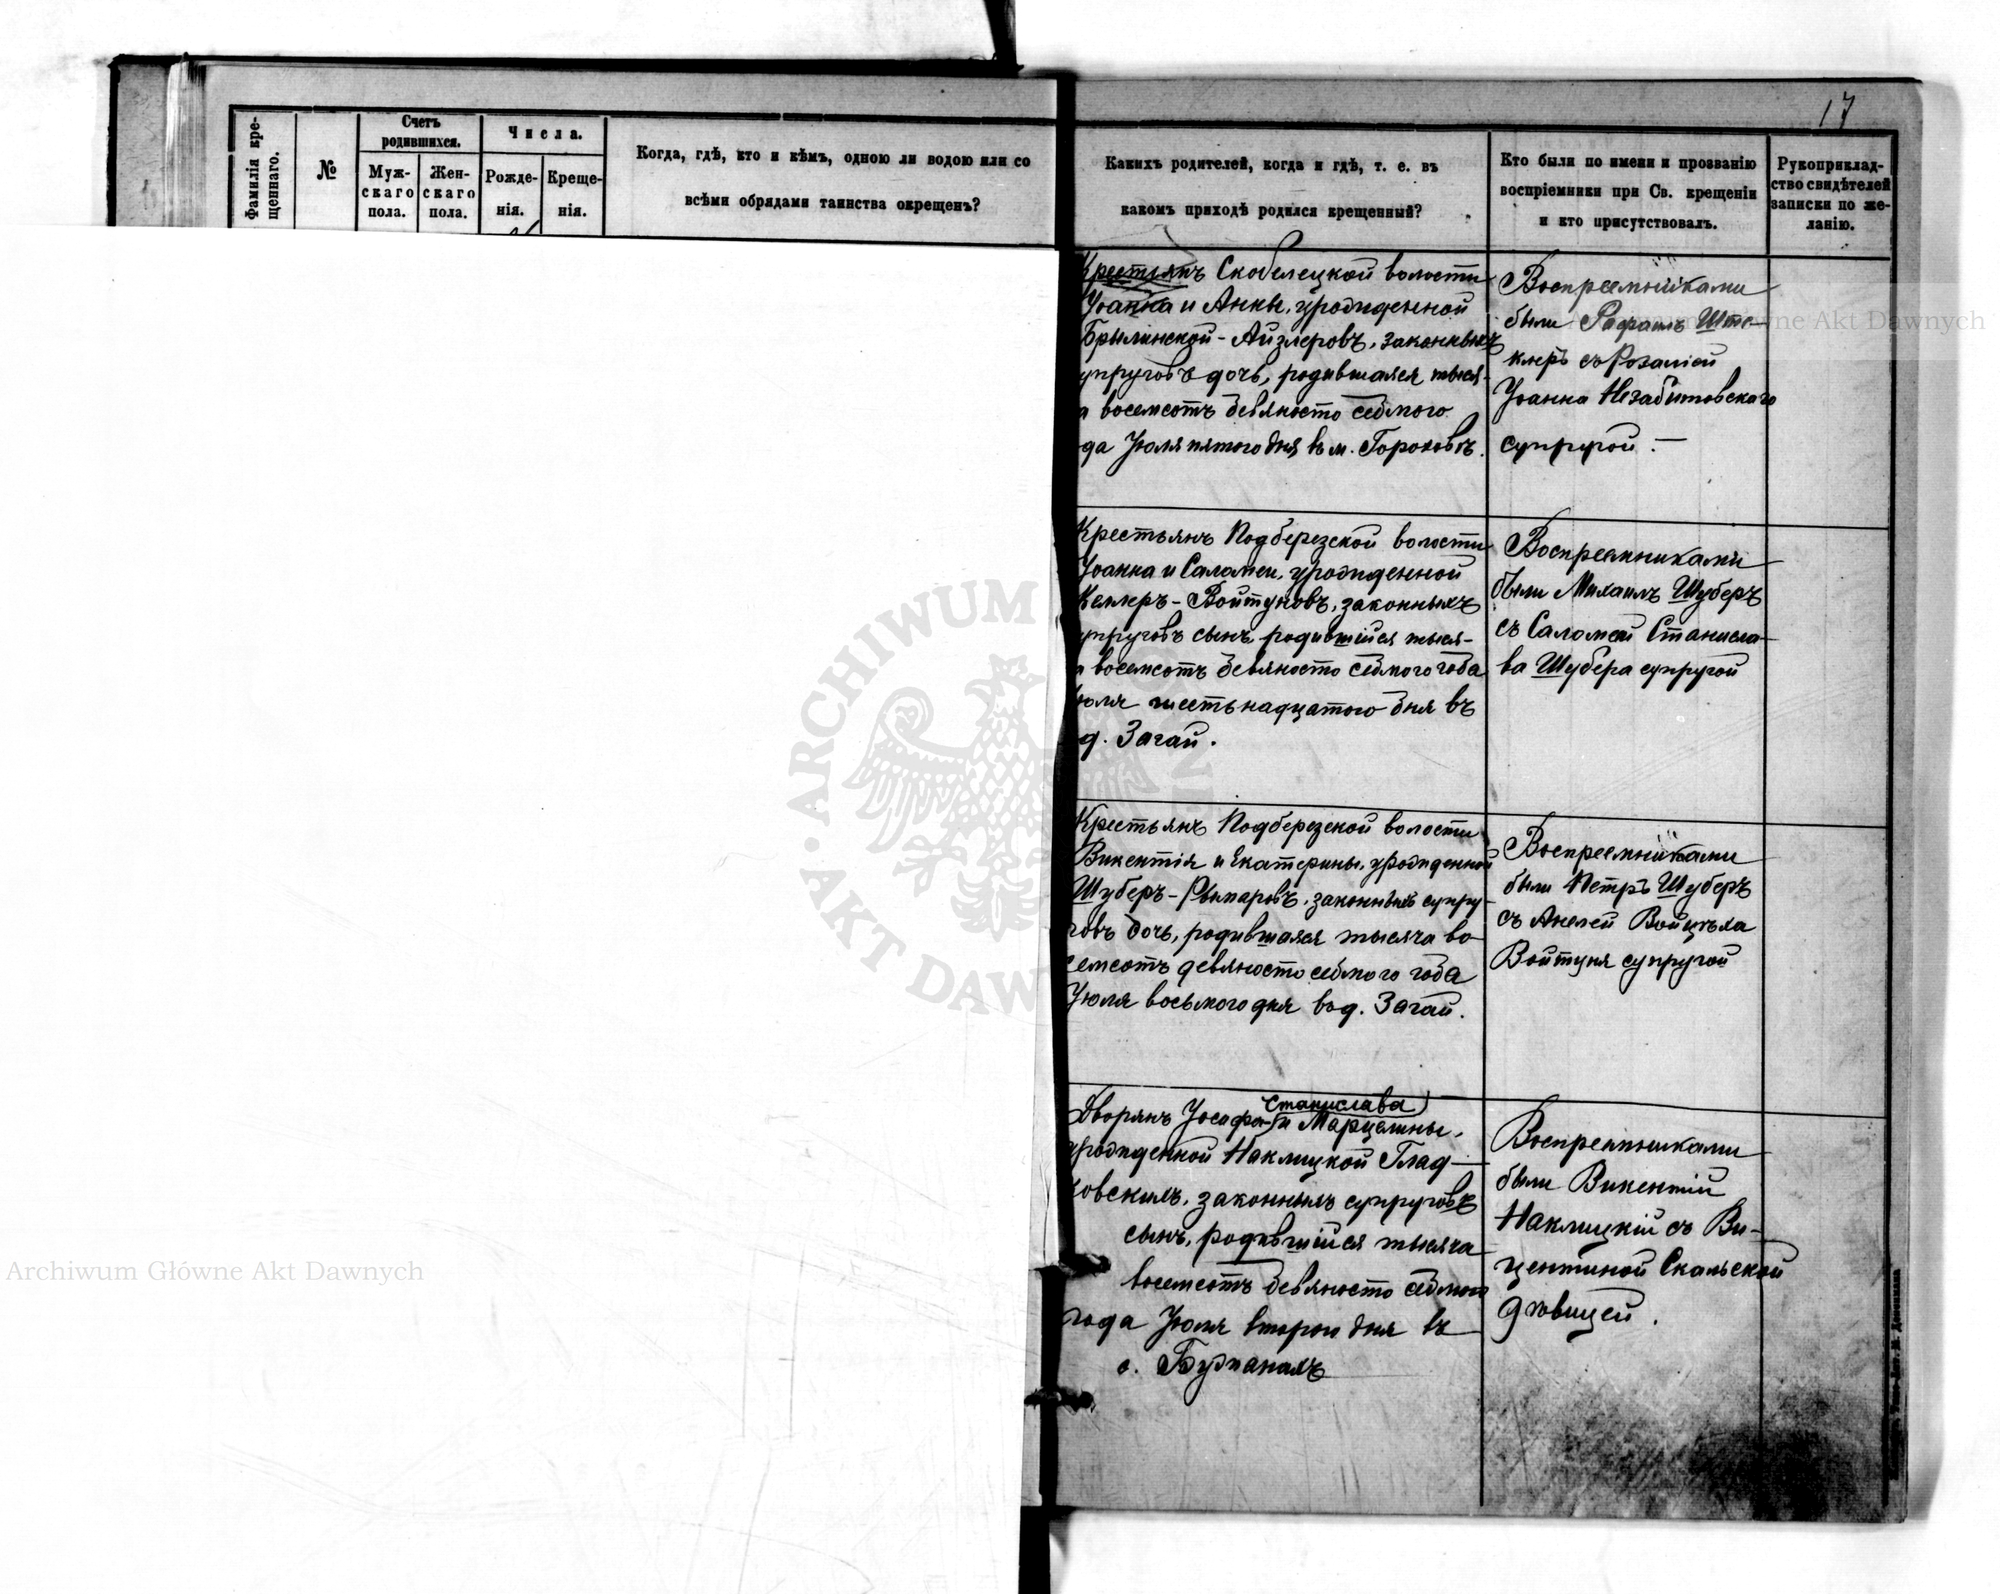 17
Фамилія кре-
щеннаго.
№
Счетъ
родившихся.
Муж-
скаго
пола.
Жен-
скаго
пола.
Числа.
Рожде-
нія.
Креще-
нія.
Когда, гдѣ, кто и кѣмъ, одною ли водою или со
всѣми обрядами таинства окрещенъ?
Какихъ родителей, когда и гдѣ, т. е. въ
какомъ приходѣ родился крещенный?
Кто были по имени и прозванію
воспріемники при Св. крещеніи
и кто присутствовалъ.
Рукоприклад-
ство свидѣтелей
записки по же-
ланію.
Крестьянъ Скобелецкой волости
Іоанна и Анны, урожденной
Брылинской-Айзлеровъ, законныхъ
супруговъ дочь, родившаяся тыся-
а восемсотъ девяносто седмого
да Іюля пятого дня въ м. Гороховѣ.
Воспреемниками
были Рафаилъ Ште-
клеръ съ Розаліей
Іоанна Незабитовскаго
супругой —
Крестьянъ Подберезской волости
Іоанна и Саломеи, урожденной
Келлеръ-Войтуновъ, законныхъ
упруговъ сынъ, родившійся тыся-
а восемсотъ девяносто седмого года
юля шестьнадцатого дня въ
д. Загай.
Воспреемниками
были Михаилъ Шуберъ
съ Саломей Станисла-
ва Шубера супругой
Крестьянъ Подберезской волости
Викентія и Екатерины, урожденной
Шуберъ-Рымаровъ, законныхъ супру-
говъ дочь, родившаяся тысяча во-
семсотъ девяносто седмого года
Іюля восьмого дня въ д. Загай.
Воспреемниками
были Петръ Шуберъ
съ Анелей Войцѣха
Войтуня супругой
Дворянъ Іосафа-Станислава и Марцелины,
урожденной Наклицкой Глад-
ковскихъ, законныхъ супруговъ
сынъ, родившійся тысяча
восемсотъ девяносто седмого
года Іюля второго дня въ
с. Бужанахъ
Воспреемниками
были Викентій
Наклицкій съ Ви-
центиной Скальской
дѣвицей.
Archiwum Główne Akt Dawnych
Archiwum Główne Akt Dawnych
ARCHIWUM
AKT DAW